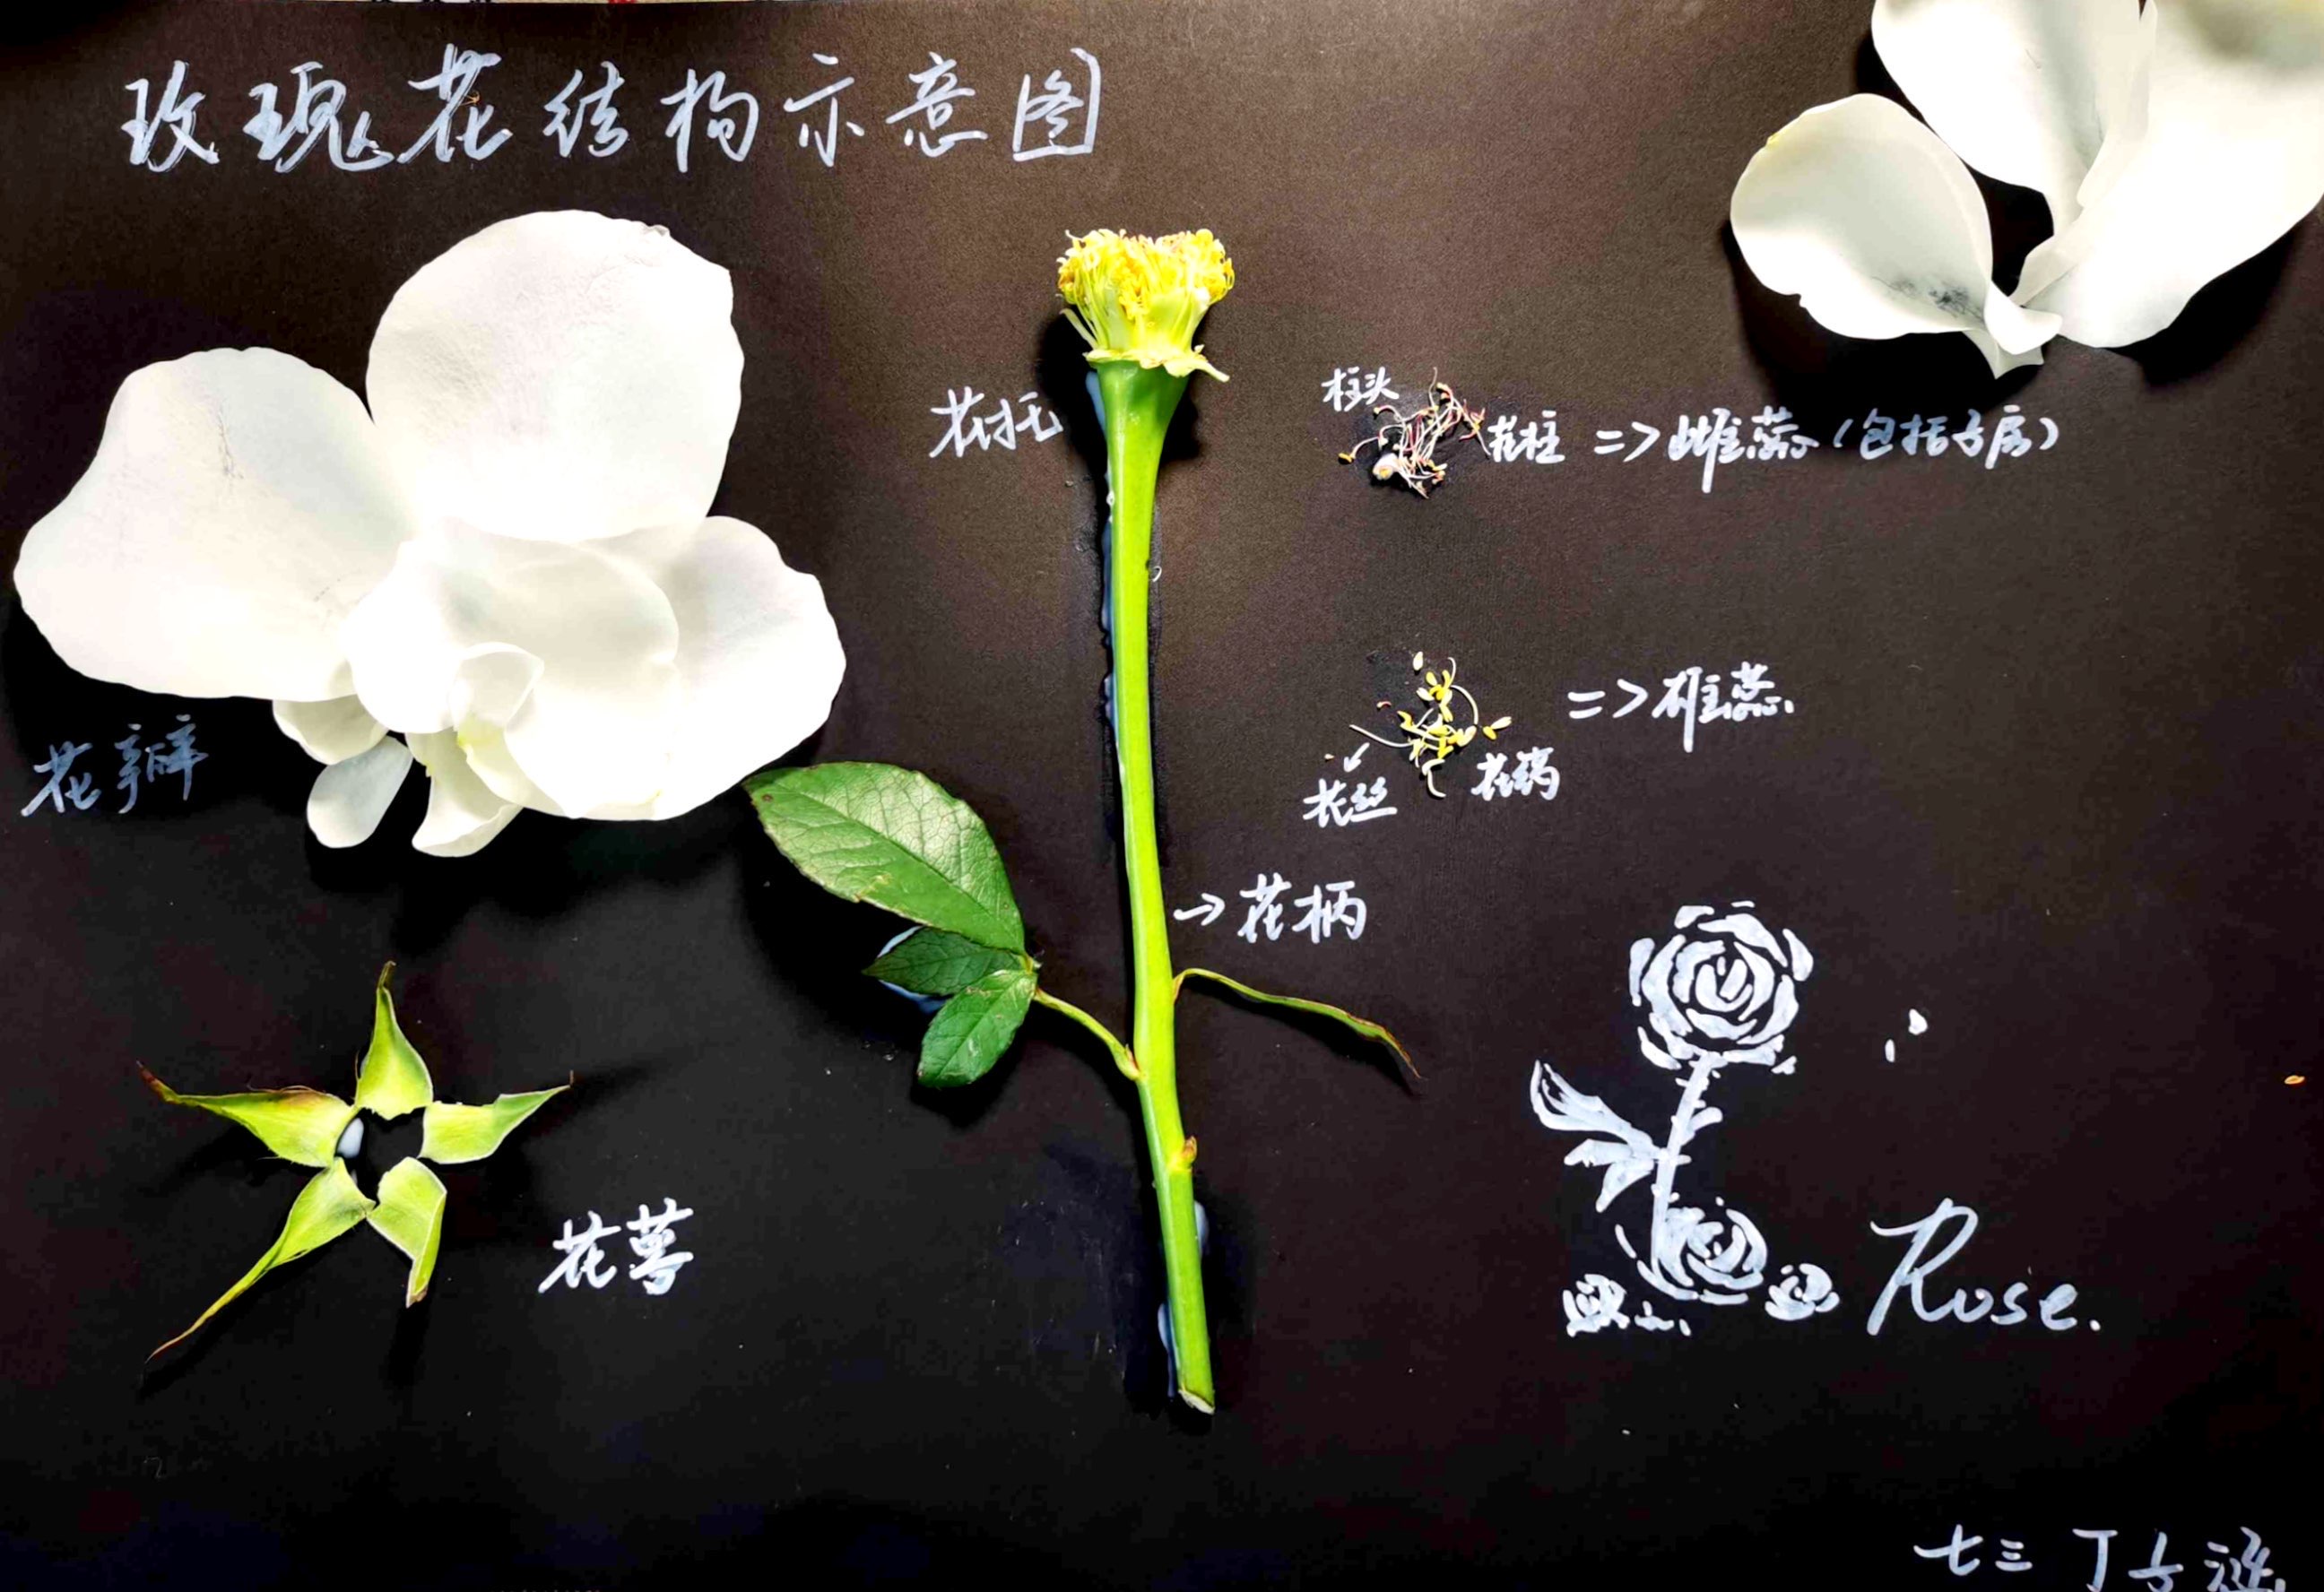 玫瑰花结构示意图
花托
柱头
花柱 => 雌蕊 (包括子房)
=> 雄蕊
花丝
花药
花瓣
→ 花柄
花萼
Rose.
七三 丁